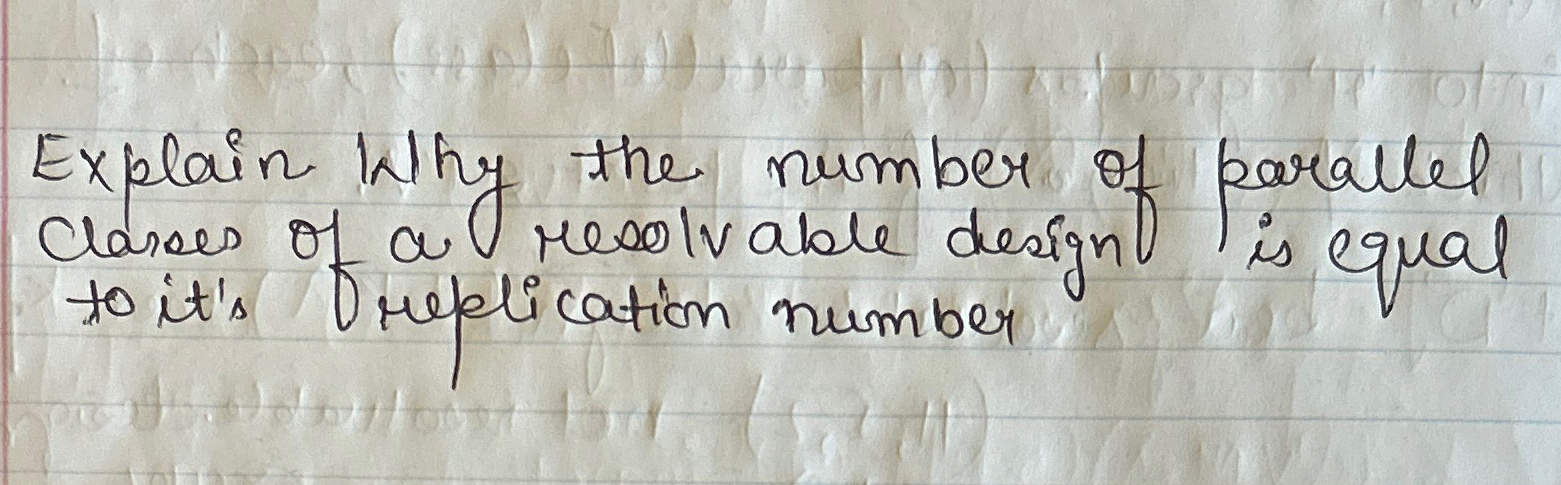 Explain Why the number of parallel
classes of a resolvable design is equal
to it's replication number